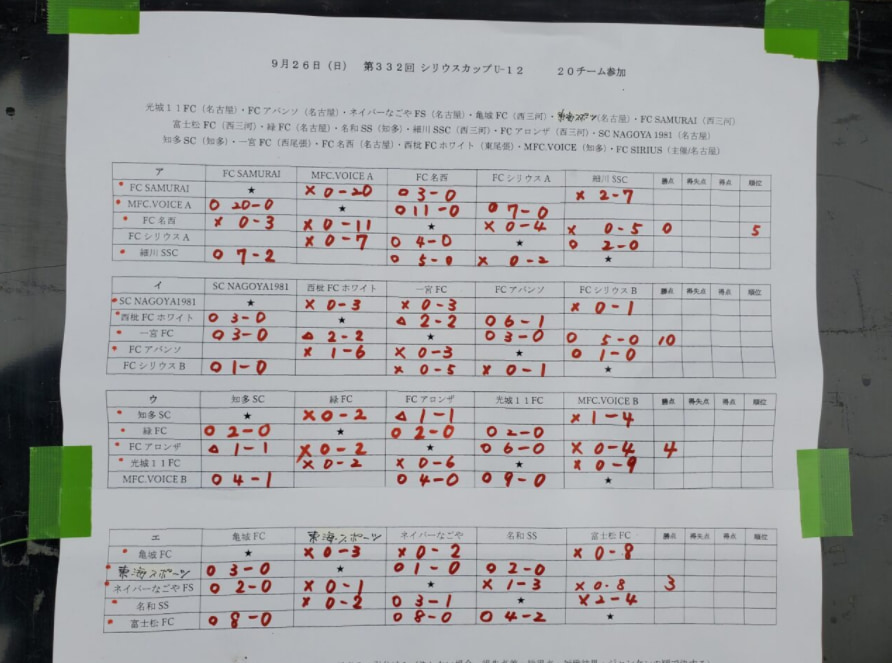 9月26日（日）　第332回 シリウスカップU-12　　20チーム参加
光城11FC（名古屋）・FCアバンソ（名古屋）・ネイバーなごやFS（名古屋）・亀城FC（西三河）・東海スポーツ（名古屋）・FC SAMURAI（西三河）
富士松FC（西三河）・緑FC（名古屋）・名和SS（知多）・細川SSC（西三河）・FCアロンザ（西三河）・SC NAGOYA 1981（名古屋）
知多SC（知多）・一宮FC（西尾張）・FC名西（名古屋）・西枇FCホワイト（東尾張）・MFC.VOICE（知多）・FC SIRIUS（主催/名古屋）
ア FC SAMURAI MFC.VOICE A FC名西 FCシリウスA 細川SSC 勝点 得失点 得点 順位
FC SAMURAI ★ × 0-20 ○ 3-0 × 2-7
MFC.VOICE A ○ 20-0 ★ ○ 11-0 ○ 7-0
FC名西 × 0-3 × 0-11 ★ × 0-4 × 0-5 0 5
FCシリウスA × 0-7 ○ 4-0 ★ ○ 2-0
細川SSC ○ 7-2 ○ 5-0 × 0-2 ★
イ SC NAGOYA1981 西枇FCホワイト 一宮FC FCアバンソ FCシリウスB 勝点 得失点 得点 順位
SC NAGOYA1981 ★ × 0-3 × 0-3 × 0-1
西枇FCホワイト ○ 3-0 ★ △ 2-2 ○ 6-1
一宮FC ○ 3-0 △ 2-2 ★ ○ 3-0 ○ 5-0 10
FCアバンソ × 1-6 × 0-3 ★ ○ 1-0
FCシリウスB ○ 1-0 × 0-5 × 0-1 ★
ウ 知多SC 緑FC FCアロンザ 光城11FC MFC.VOICE B 勝点 得失点 得点 順位
知多SC ★ × 0-2 △ 1-1 × 1-4
緑FC ○ 2-0 ★ ○ 2-0 ○ 2-0
FCアロンザ △ 1-1 × 0-2 ★ ○ 6-0 × 0-4 4
光城11FC × 0-2 × 0-6 ★ × 0-9
MFC.VOICE B ○ 4-1 ○ 4-0 ○ 9-0 ★
エ 亀城FC 東海スポーツ ネイバーなごや 名和SS 富士松FC 勝点 得失点 得点 順位
亀城FC ★ × 0-3 × 0-2 × 0-8
東海スポーツ ○ 3-0 ★ ○ 1-0 ○ 2-0
ネイバーなごやFS ○ 2-0 × 0-1 ★ × 1-3 × 0-8 3
名和SS × 0-2 ○ 3-1 ★ × 2-4
富士松FC ○ 8-0 ○ 8-0 ○ 4-2 ★